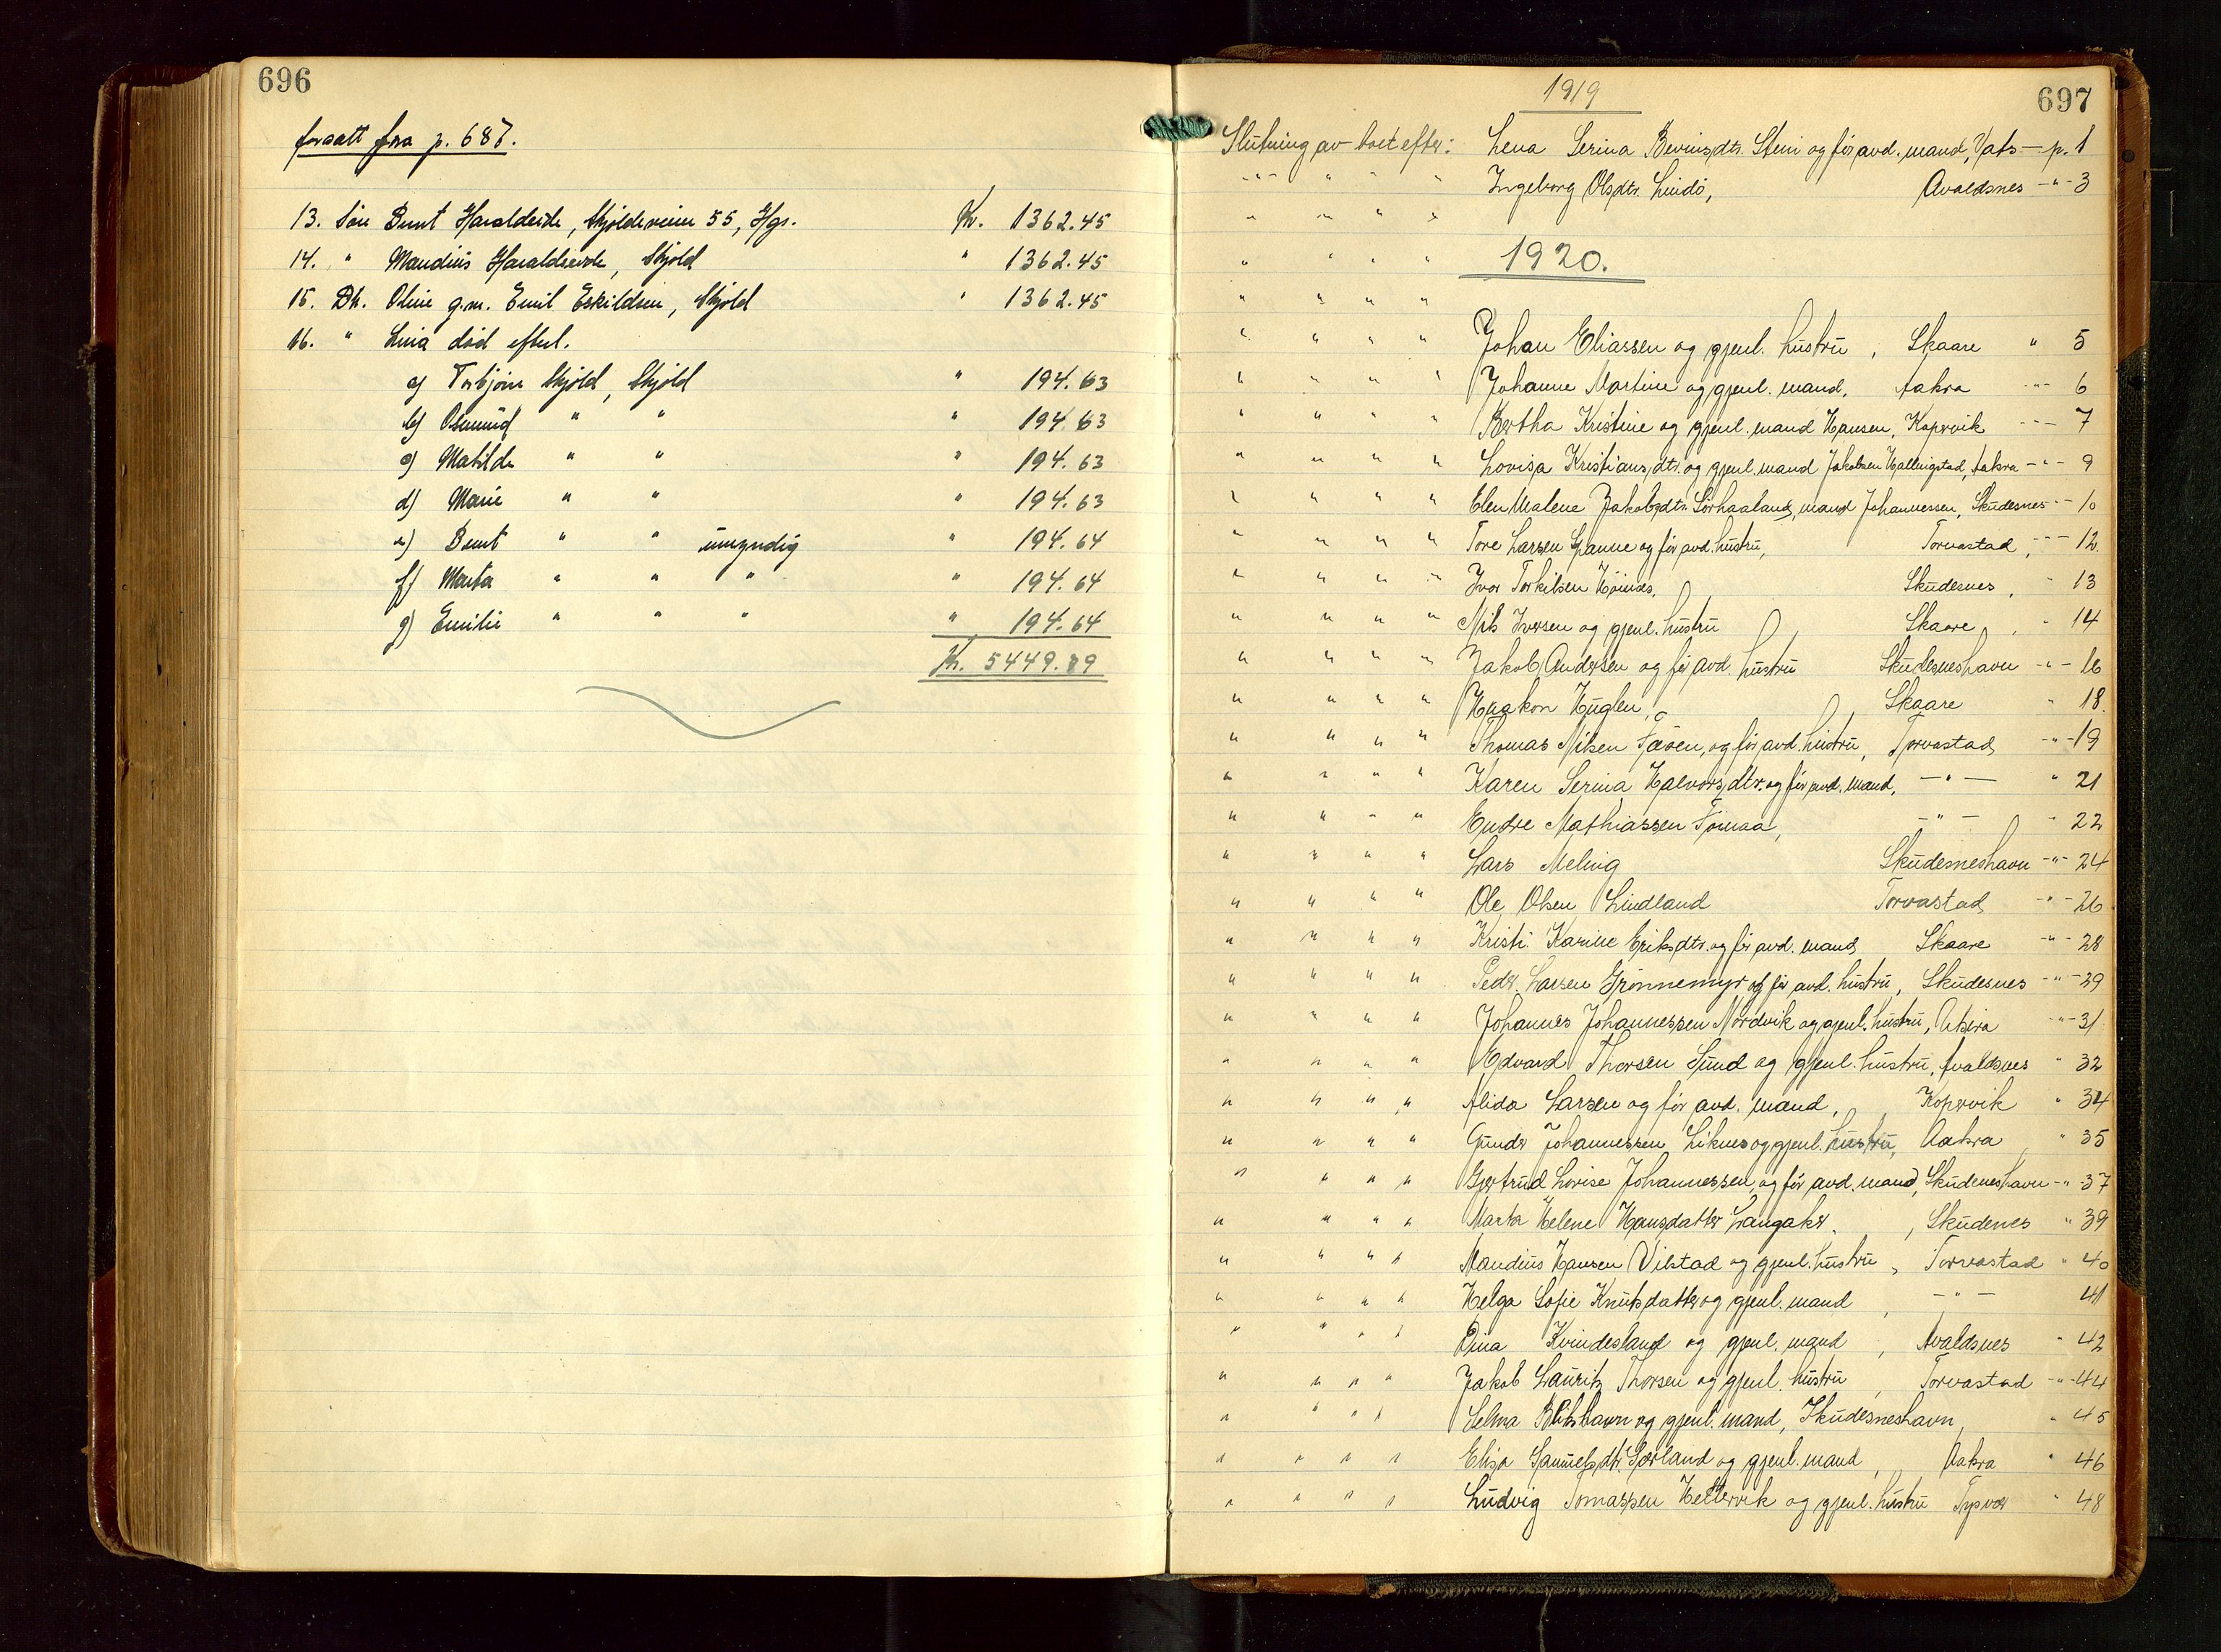 696
forsatt fra p. 687.
13. Søn Bernt Haraldseide, Skjoldaveien 55, Hgs. Kr. 1362.45
14. " Mandius Haraldseide, Skjold " 1362.45
15. Dt. Oline g.m. Emil Eskildsen, Skjold " 1362.45
16. " Lina død efterl.
a) Torbjørn Skjold, Skjold " 194.63
b) Osmund " " " 194.63
c) Matilde " " " 194.63
d) Marie " " " 194.63
e) Bernt " " umyndig " 194.64
f) Marta " " " " 194.64
g) Emilie " " " " 194.64
Kr. 5449.79
697
1919
Slutning av boet efter: Lena Serina Bevinsdtr. Stein og før avd. mand, Vats — p. 1
" " " " Ingeborg Olsdtr. Lindø, Avaldsnes -"- 3
" " " "
" " " " 1920.
" " " "
" " " " Johan Eliassen og gjenl. hustru, Skaare " 5
" " " " Johanne Martine og gjenl. mand, Aakra -"- 6
" " " " Bertha Kristine og gjenl. mand Hansen, Kopervik -"- 7
" " " " Lovisa Kristiansdtr. og gjenl. mand Jakobsen Hallingstad, Aakra -"- 9
" " " " Elen Malene Jakobsdtr. Sørhaaland, mand Johannessen, Skudesnes -"- 10
" " " " Tore Larsen Spanne og før avd. hustru, Torvastad, -"- 12.
" " " " Ivar Torkilsen Høines, Skudesnes, " 13
" " " " Nils Iversen og gjenl. hustru, Skaare, " 14
" " " " Jakob Andersen og før avd. hustru Skudesneshavn -"- 16
" " " " Haakon Huglen, Skaare " 18.
" " " " Thomas Nilsen Fæøen, og før avd. hustru, Torvastad -"- 19
" " " " Karen Serina Halvorsdtr. og før avd. mand, -"- " 21
" " " " Endre Mathiassen Tømaa, -"- " 22
" " " " Lars Meling Skudesneshavn -"- 24
" " " " Ole Olsen Lindland Torvastad -"- 26
" " " " Kristi Karine Eriksdtr. og før avd. mand, Skaare -"- 28
" " " " Peder Larsen Grønnemyr og før avd. hustru, Skudesnes -"- 29
" " " " Johannes Johannessen Nordvik og gjenl. hustru, Utsira -"- 31
" " " " Edvard Thorsen Sund og gjenl. hustru, Avaldsnes " 32
" " " " Alida Larsen og før avd. mand, Kopervik " 34
" " " " Gunder Johannessen Liknes og gjenl. hustru, Aakra " 35
" " " " Gjertrud Lovise Johannessen, og før avd. mand, Skudeneshavn -"- 37
" " " " Marta Helene Hansdatter Langaker, Skudenes " 39
" " " " Mandius Hansen Vikstad og gjenl. hustru, Torvastad " 40
" " " " Helga Sofie Knutsdatter og gjenl. mand, -"- 41
" " " " Dina Kvindesland og gjenl. mand, Avaldsnes " 42
" " " " Jakob Lauritz Thorsen og gjenl. hustru, Torvastad -"- 44
" " " " Selma og gjenl. mand, Skudesneshavn, " 45
" " " " Elisa Samuelsdtr. Sørland og gjenl. mand, Aakra " 46
" " " " Ludvig Tomassen Hettervik og gjenl. hustru Tysvær " 48